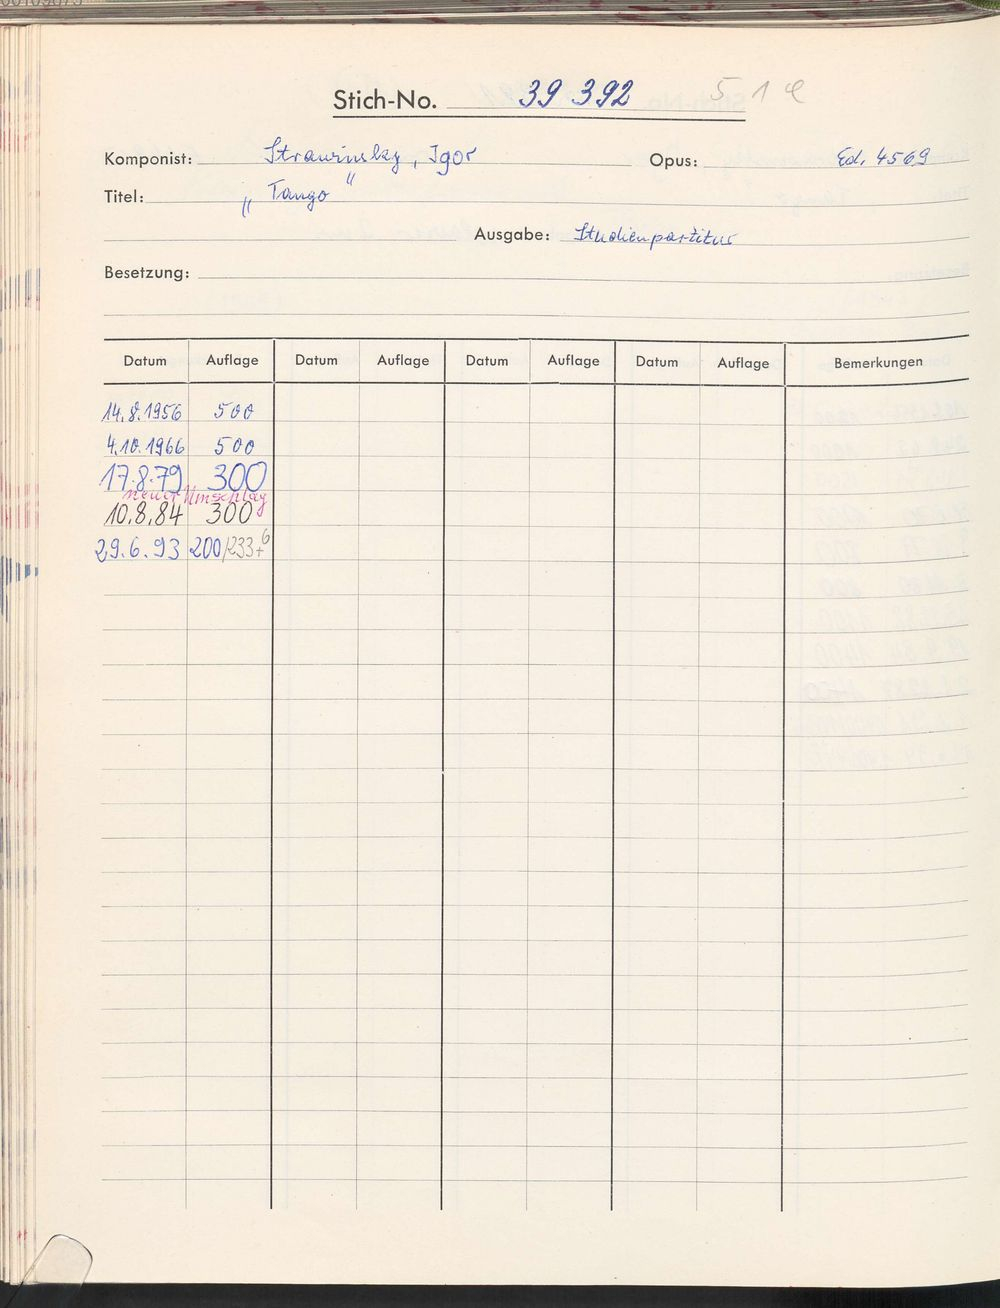 Stich-No. 39 392
Komponist: Strawinsky, Igor Opus: Ed. 4569
Titel: „Tango"
Ausgabe: Studienpartitur
Besetzung:
Datum Auflage Datum Auflage Datum Auflage Datum Auflage Bemerkungen
14.8.1956 500
4.10.1966 500
17.8.79 300
neuer Umschlag
10.8.84 300
29.6.93 200/233+6